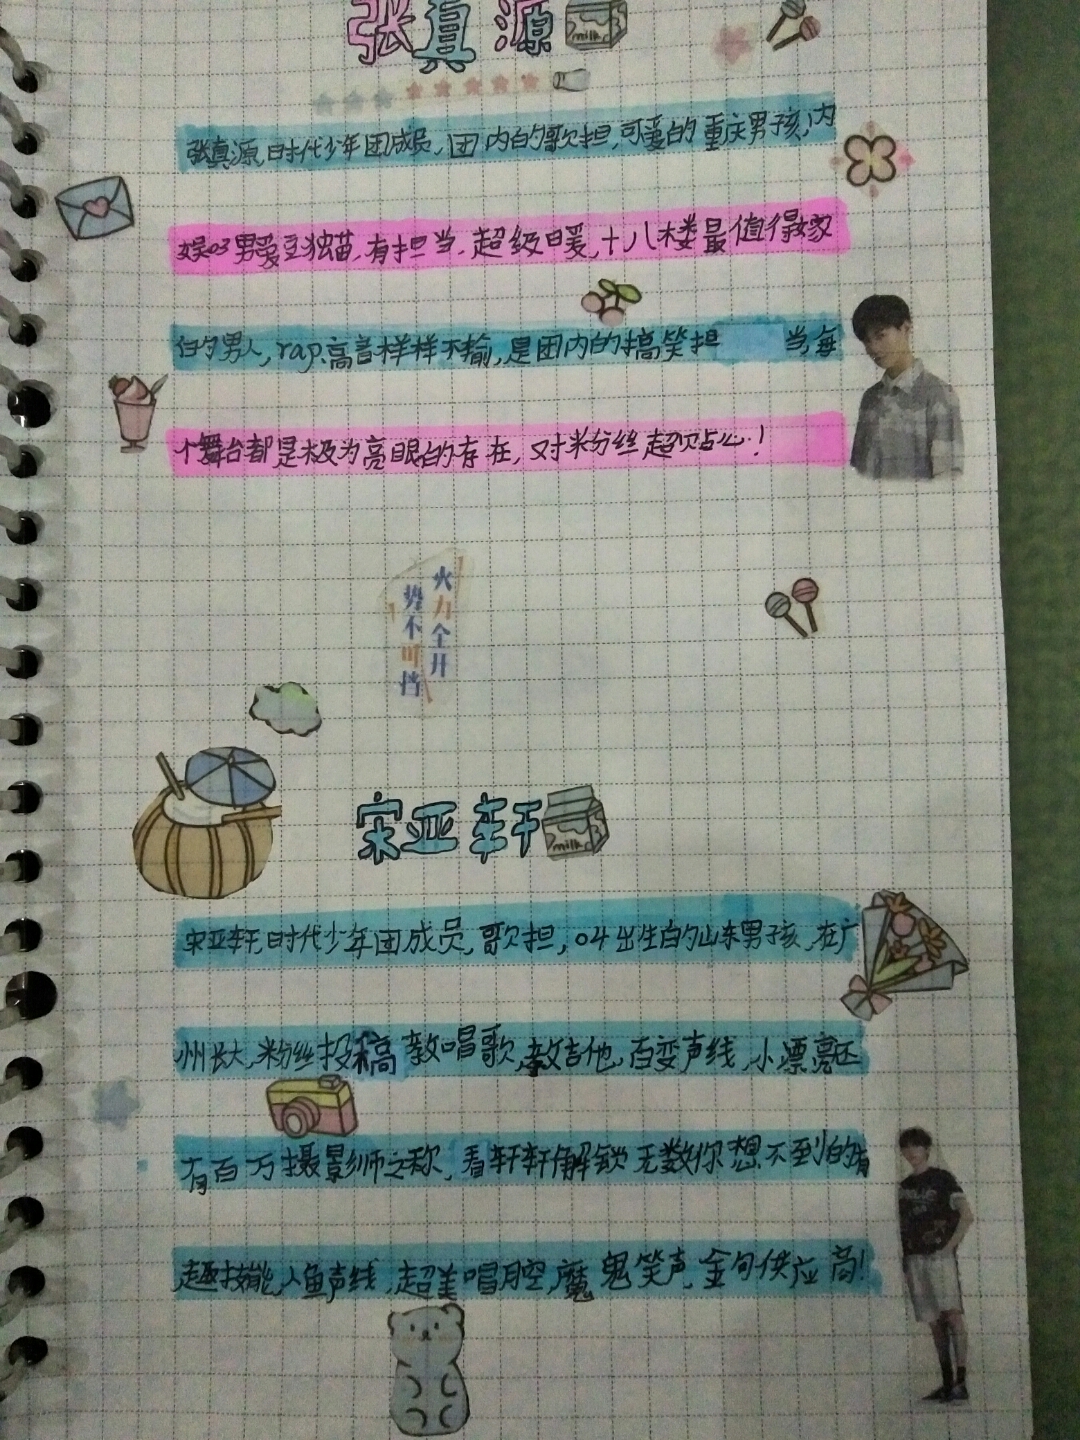 张真源
milk
张真源,时代少年团成员,团内的歌担,可爱的重庆男孩,内
娱03男爱豆独苗,有担当,超级暖,十八楼最值得嫁
的男人,rap、高音样样不输,是团内的搞笑担当,每
个舞台都是极为亮眼的存在,对粉丝超
火力全开
势不可挡
宋亚轩
milk
宋亚轩,时代少年团成员,歌担,04出生的山东男孩,在广
州长大,粉丝投稿教唱歌,教吉他,百变声线,小漂亮还
有百万摄影师之称,看轩轩解锁无数你想不到的有
趣技能,人鱼声线,超美唱腔,魔鬼笑声,金句供应商!